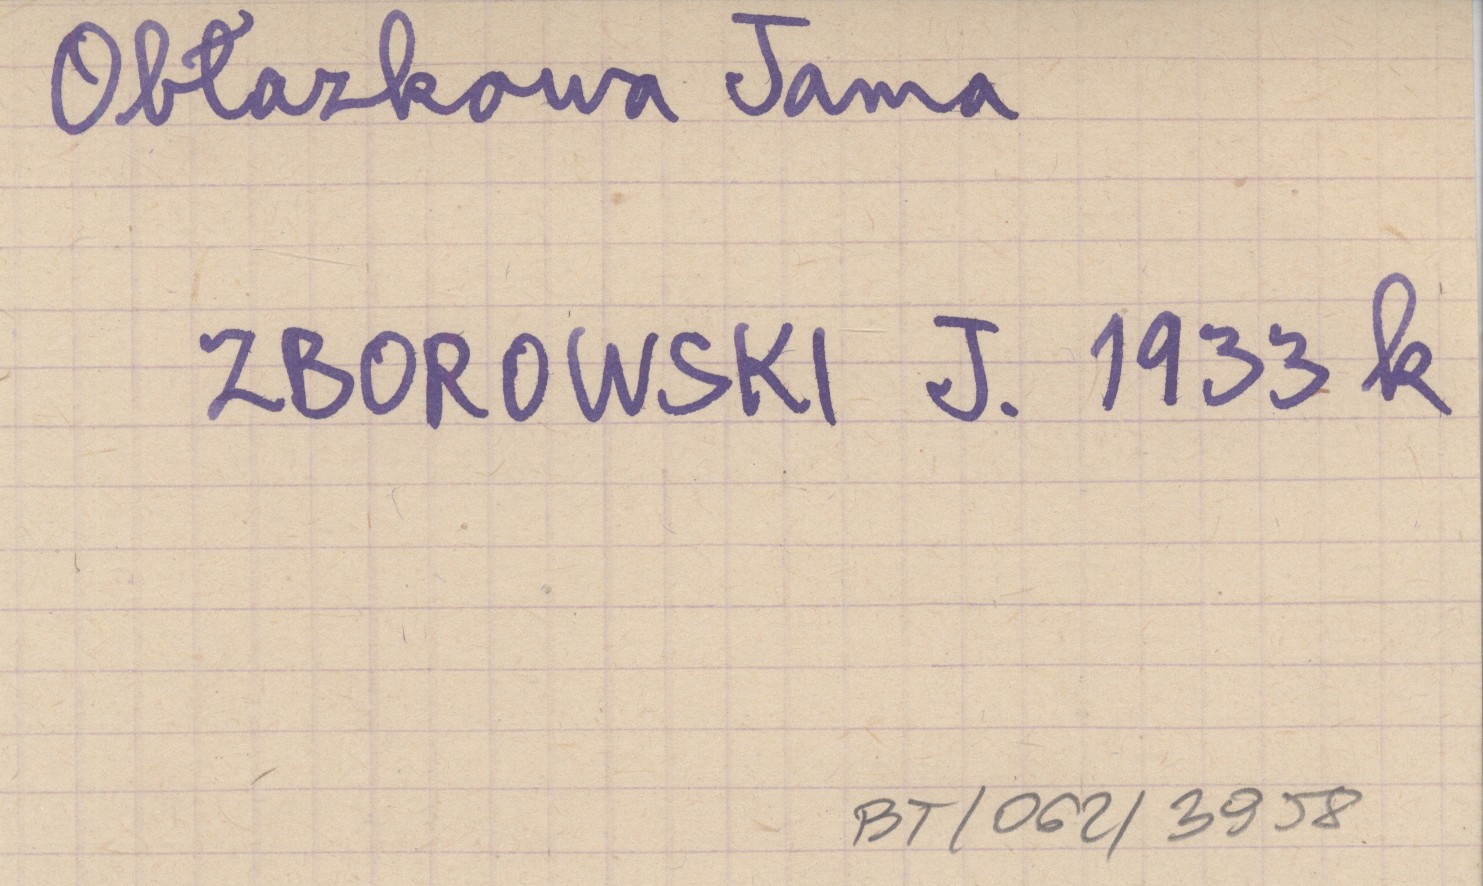 Obłazkowa Jama
ZBOROWSKI J. 1933 k
BT/062/3958